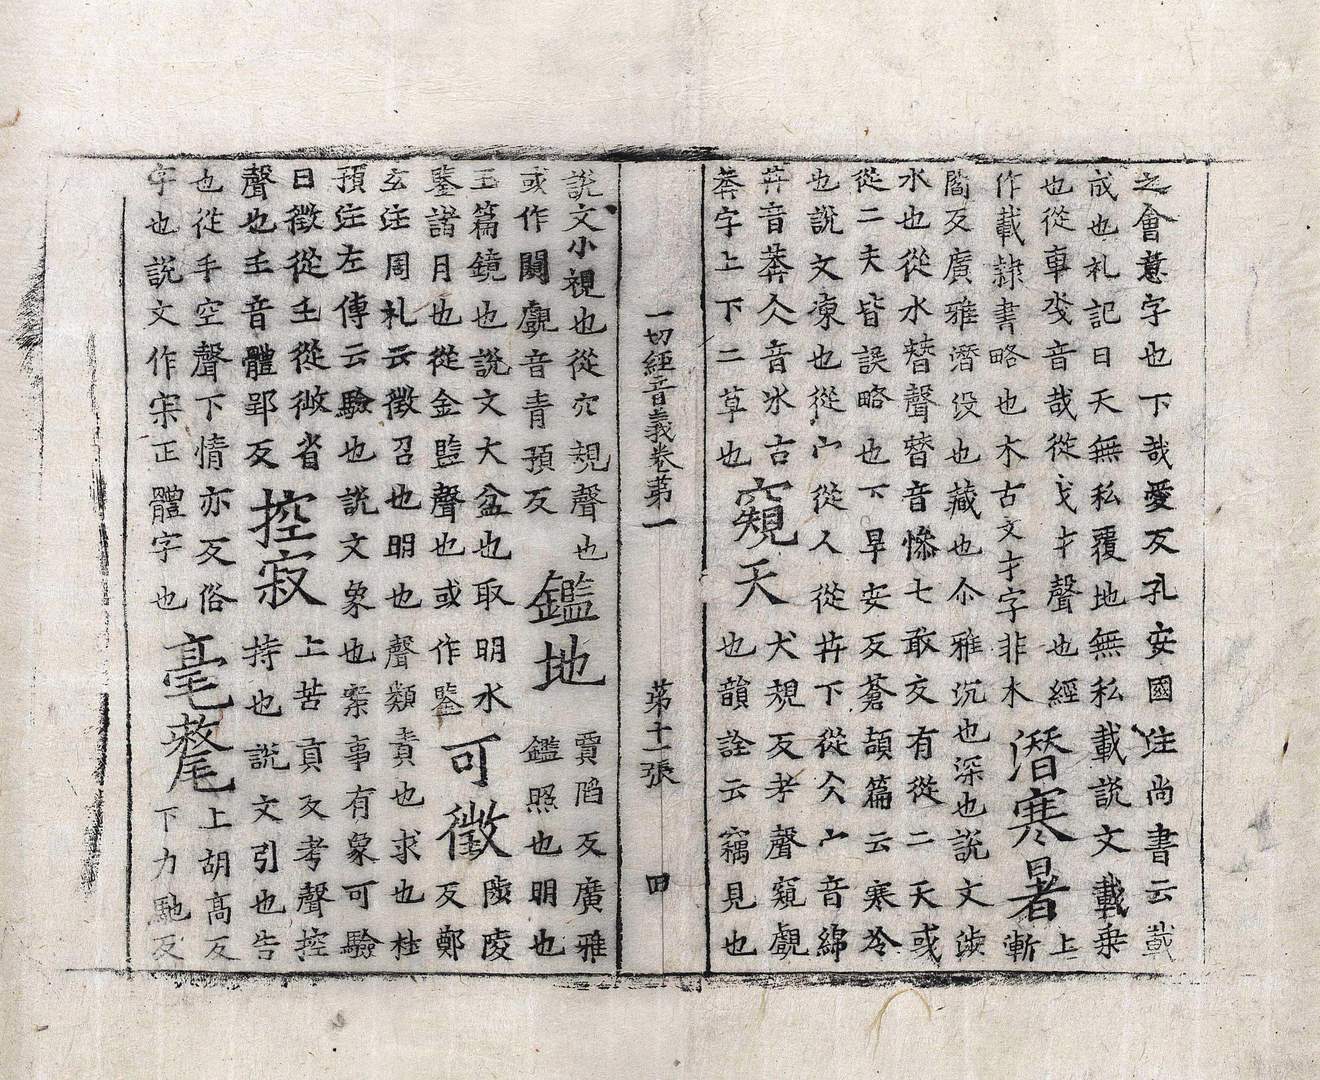 之會意字也下哉愛反孔安國注尚書云載
成也礼記曰天無私覆地無私載說文載乘
也從車𢦏音哉從戈才聲也經
作載隷書略也木古文才字非木
潛寒暑
上漸
閻反廣雅潛没也藏也尒雅沉也深也說文涉
水也從水朁聲朁音慘七敢反有從二天或
從二夫皆誤略也下旱安反蒼頡篇云寒冷
也說文凍也從宀從人從茻下從仌宀音綿
茻音莽仌音氷古
莽字上下二草也
窺天
犬規反考聲窺覰
也韻詮云竊見也
一切經音義卷苐一
苐十一張
田
說文小視也從穴規聲也
或作闚覰音青預反
鑑地
賈陷反廣雅
鑑照也明也
玉篇鏡也說文大盆也取明水
鑒諸月也從金監聲也或作鑒
可徵
陵
反鄭
玄注周礼云徵召也明也聲類責也求也杜
預注左傳云驗也說文象也案事有象可驗
曰徵從𡈼從微省
聲也𡈼音體郢反
控寂
上苦貢反考聲控
持也說文引也告
也從手空聲下情亦反俗
字也說文作宋正體字也
毫氂
上胡高反
下力馳反